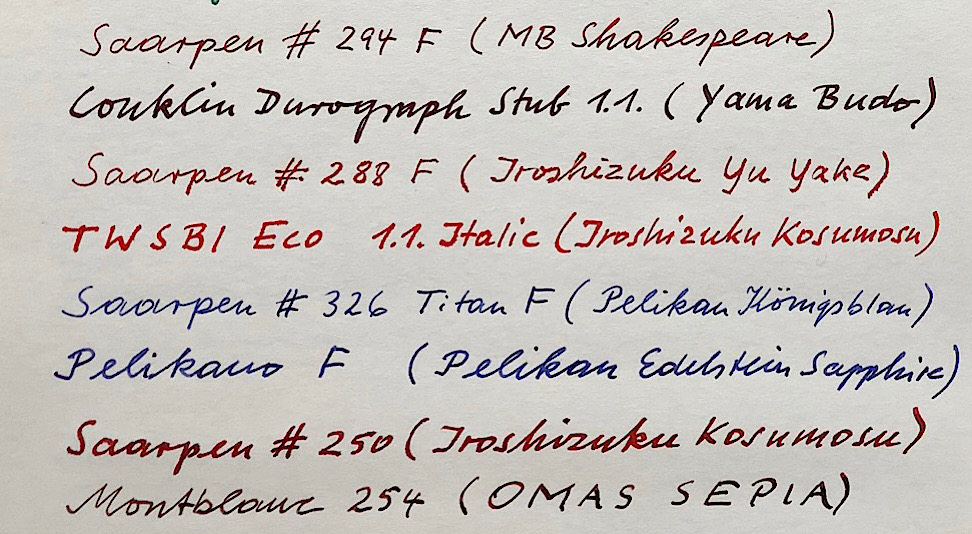 Saarpen # 294 F (MB Shakespeare)
Conklin Durograph Stub 1.1. (Yama Budo)
Saarpen # 288 F (Iroshizuku Yu Yake)
TWSBI Eco 1.1. Italic (Iroshizuku Kosumosu)
Saarpen # 326 Titan F (Pelikan Königsblau)
Pelikano F (Pelikan Edelstein Sapphire)
Saarpen # 250 (Iroshizuku Kosumosu)
Montblanc 254 (OMAS SEPIA)